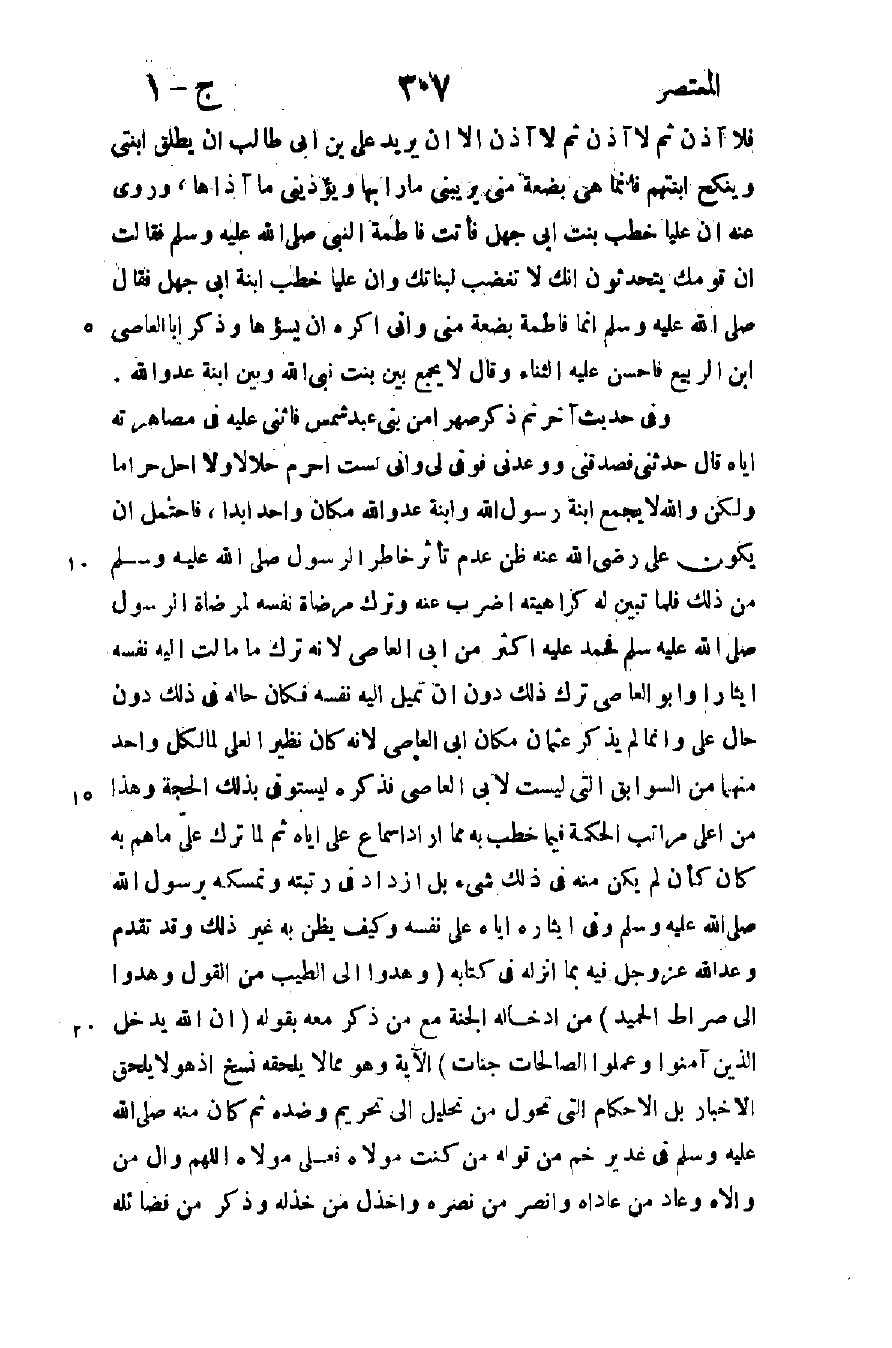 المعتصر ٣٠٧ ج - ١
فلا آذن ثم لا آذن ثم لا آذن الا ان يريد على بن ابى طالب ان يطلق ابنتى
وينكح ابنتهم فانما هى بضعة منى يريبنى مارابها ويؤذينى ما آذاها، وروى
عنه ان عليا خطب بنت ابى جهل فأتت فاطمة النبى صلى الله عليه وسلم فقالت
ان قومك يتحدثون انك لا تغضب لبناتك وان عليا خطب ابنة ابى جهل فقال
صلى الله عليه وسلم انما فاطمة بضعة منى وانى اكره ان يسؤها وذكر ابا العاصى ٥
ابن الربيع فاحسن عليه الثناء وقال لا يجمع بين بنت نبى الله وبين ابنة عدو الله .
وفى حديث آخر ثم ذكر صهرا من بنى عبد شمس فاثنى عليه فى مصاهرته
اياه قال حدثنى فصدقنى ووعدنى فوفى لى وانى لست احرم حلالا ولا احل حراما
ولكن والله لا يجمع ابنة رسول الله وابنة عدو الله مكان واحد ابدا، فاحتمل ان
يكون على رضى الله عنه ظن عدم تأثر خاطر الرسول صلى الله عليه وسلم ١٠
من ذلك فلما تبين له كراهيته اضرب عنه وترك مرضاة نفسه لمرضاة الرسول
صلى الله عليه سلم فحمد عليه اكثر من ابى العاصى لانه ترك ما مالت اليه نفسه
ايثارا وابو العاصى ترك ذلك دون ان تميل اليه نفسه فكان حاله فى ذلك دون
حال على وانما لم يذكر عثمان مكان ابى العاصى لانه كان نظير العلى لما لكل واحد
منهما من السوابق التى ليست لابى العاصى فذكره ليستوفى بذلك الحجة وهذا ١٥
من اعلى مراتب الحكمة فيما خطب به مما اراد اسماع على اياه ثم لما ترك علىّ ما هم به
كان كأن لم يكن منه فى ذلك شىء بل ازداد فى رتبته وتمسكه برسول الله
صلى الله عليه وسلم وفى ايثاره اياه على نفسه وكيف يظن به غير ذلك وقد تقدم
وعد الله عز وجل فيه بما انزله فى كتابه (وهدوا الى الطيب من القول وهدوا
الى صراط الحميد) من ادخاله الجنة مع من ذكر معه بقوله (ان الله يدخل ٢٠
الذين آمنوا وعملوا الصالحات جنات) الآية وهو مما لا يلحقه نسخ اذ هو لا يلحق
الاخبار بل الاحكام التى تحول من تحليل الى تحريم وضده ثم كان منه صلى الله
عليه وسلم فى غدير خم من قوله من كنت مولاه فعلى مولاه اللهم وال من
والاه وعاد من عاداه وانصر من نصره واخذل من خذله وذكر من فضائله